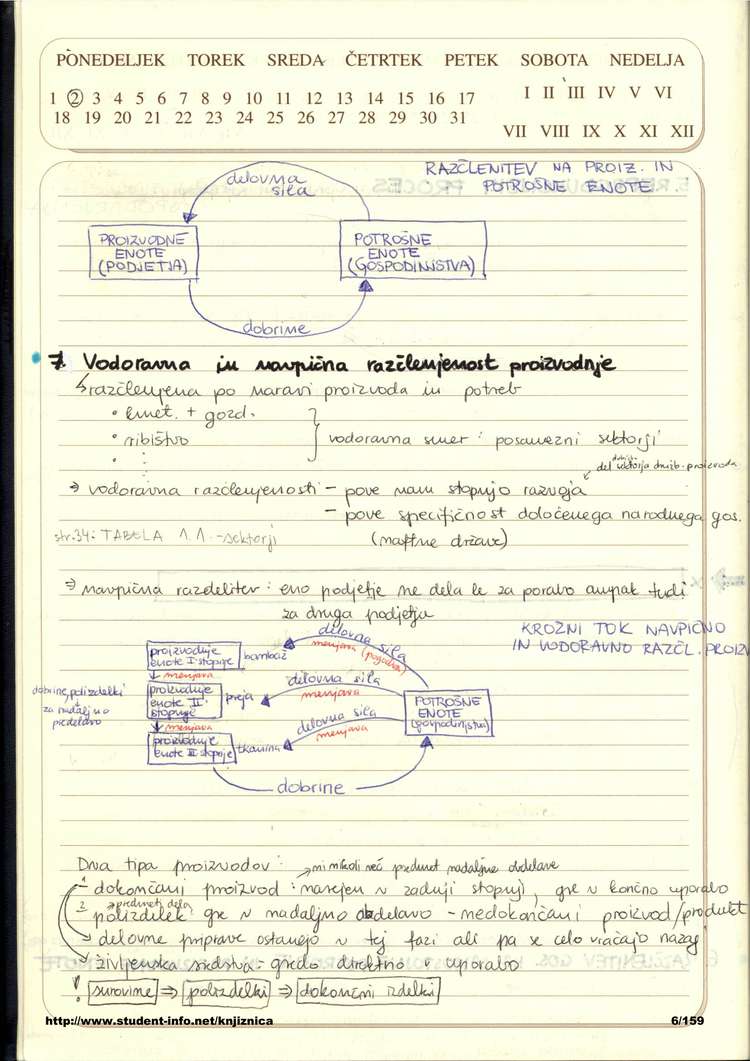 PONEDELJEK TOREK SREDA ČETRTEK PETEK SOBOTA NEDELJA
1 2 3 4 5 6 7 8 9 10 11 12 13 14 15 16 17
18 19 20 21 22 23 24 25 26 27 28 29 30 31
I II III IV V VI
VII VIII IX X XI XII
RAZČLENITEV NA PROIZ. IN
POTROŠNE ENOTE
delovna
sila
PROIZVODNE
ENOTE
(PODJETJA)
POTROŠNE
ENOTE
(GOSPODINJSTVA)
dobrine
7. Vodoravna in navpična razčlenjenost proizvodnje
↳ razčlenjena po naravi proizvoda in potreb
• kmet. + gozd.
• ribištvo
vodoravna smer: posamezni sektorji
del sektorja družb. proizvoda
→ vodoravna razčlenjenosti - pove nam stopnjo razvoja
- pove specifičnost določenega narodnega gos.
str.34: TABELA 1.1. - sektorji
(naftne države)
⇒ navpična razdelitev: eno podjetje ne dela le za porabo ampak tudi
za druga podjetja
KROŽNI TOK NAVPIČNO
IN VODORAVNO RAZČL. PROIZV
delovna sila
menjava (pogodba)
proizvodnje
enote I. stopnje
bombaž
menjava
delovna sila
menjava
dobrine, polizdelki
za nadaljno
predelavo
proizvodnje
enote II.
stopnje
preja
menjava
delovna sila
menjava
proizvodnje
enote III stopnje
tkanina
POTROŠNE
ENOTE
(gospodinjstva)
dobrine
Dva tipa proizvodov: → ni nikoli več predmet nadaljne obdelave
1. dokončani proizvod: narejen v zadnji stopnji, gre v končno uporabo
→ predmeti dela
2. polizdelek: gre v nadaljno obdelavo - nedokončani proizvod/produkt
→ delovne priprave ostanejo v tej fazi ali pa se celo vračajo nazaj
→ življenska sredstva - gredo direktno v uporabo
! surovine ⇒ polizdelki ⇒ dokončni izdelki
http://www.student-info.net/knjiznica
6/159